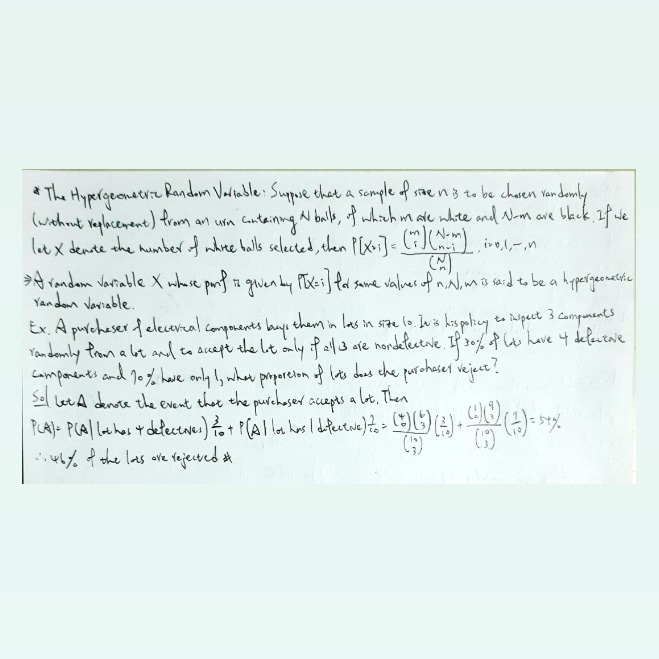 * The Hypergeometric Random Variable: Suppose that a sample of size n is to be chosen randomly
(without replacement) from an urn containing N balls, of which m are white and N-m are black. If we
let X denote the number of white balls selected, then P[X=i] = \frac{\binom{m}{i}\binom{N-m}{n-i}}{\binom{N}{n}}, i=0,1,-,n
⇒ A random variable X whose pmf is given by P[X=i] for some values of n, N, m is said to be a hypergeometric
random variable.
Ex. A purchaser of electrical components buys them in lots in size 10. It is his policy to inspect 3 components
randomly from a lot and to accept the lot only if all 3 are nondefective. If 30% of lots have 4 defective
components and 70% have only 1, what proportion of lots does the purchaser reject?
Sol Let A denote the event that the purchaser accepts a lot. Then
P(A) = P(A| lot has 4 defectives) \frac{3}{10} + P(A| lot has 1 defective) \frac{7}{10} = \frac{\binom{4}{0}\binom{6}{3}}{\binom{10}{3}} (\frac{3}{10}) + \frac{\binom{1}{0}\binom{9}{3}}{\binom{10}{3}} (\frac{7}{10}) = 54%
∴ 46% of the lots are rejected #